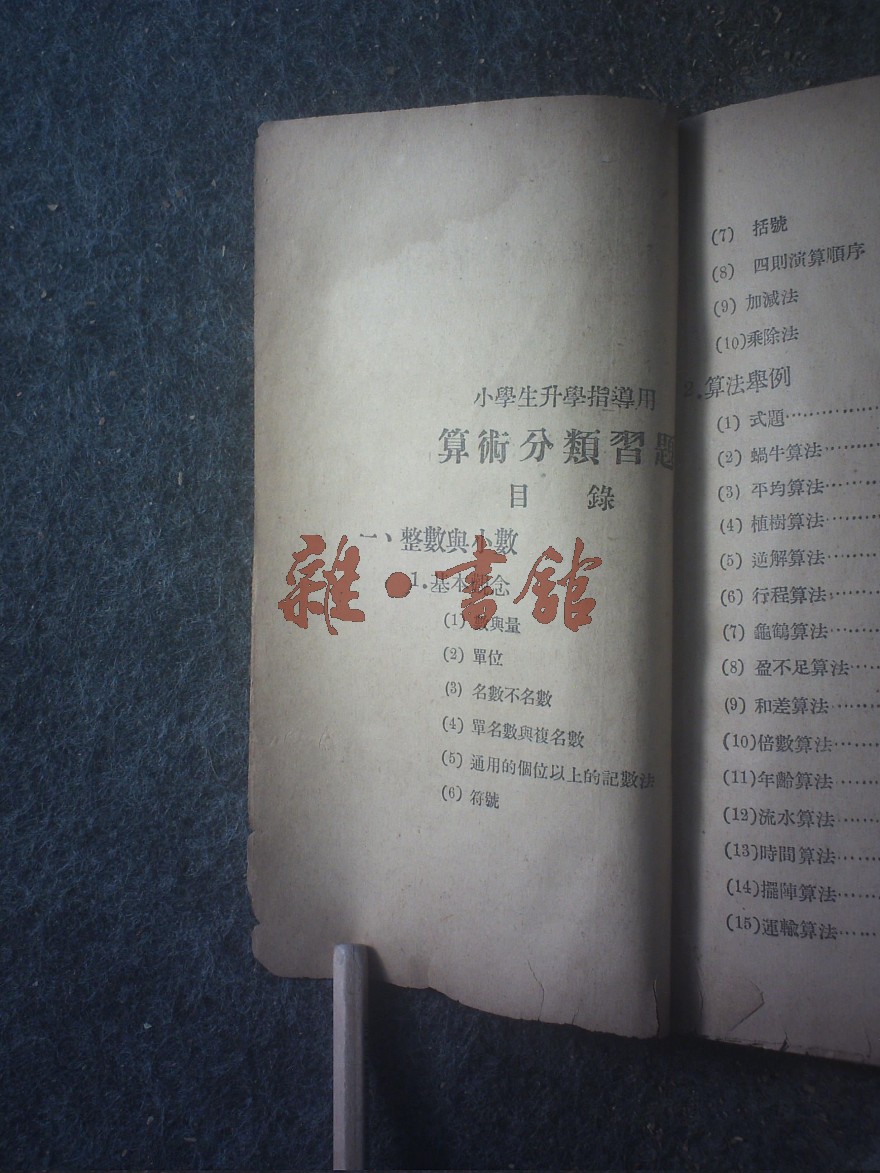 小學生升學指導用
算術分類習題
目 錄
一、整數與小數
1.基本概念
(1) 數與量
(2) 單位
(3) 名數不名數
(4) 單名數與複名數
(5) 通用的個位以上的記數法
(6) 符號
(7) 括號
(8) 四則演算順序
(9) 加減法
(10)乘除法
2.算法舉例
(1) 式題……………
(2) 蝸牛算法………
(3) 平均算法………
(4) 植樹算法………
(5) 逆解算法………
(6) 行程算法………
(7) 龜鶴算法………
(8) 盈不足算法……
(9) 和差算法………
(10)倍數算法………
(11)年齡算法………
(12)流水算法………
(13)時間算法………
(14)擺陣算法………
(15)運輸算法………
雜·書館